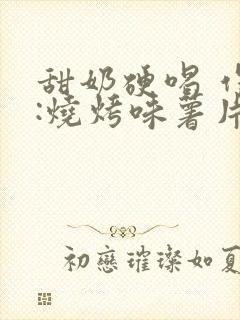 甜奶硬唱
:燒烤味薯片
初戀璀璨如夏